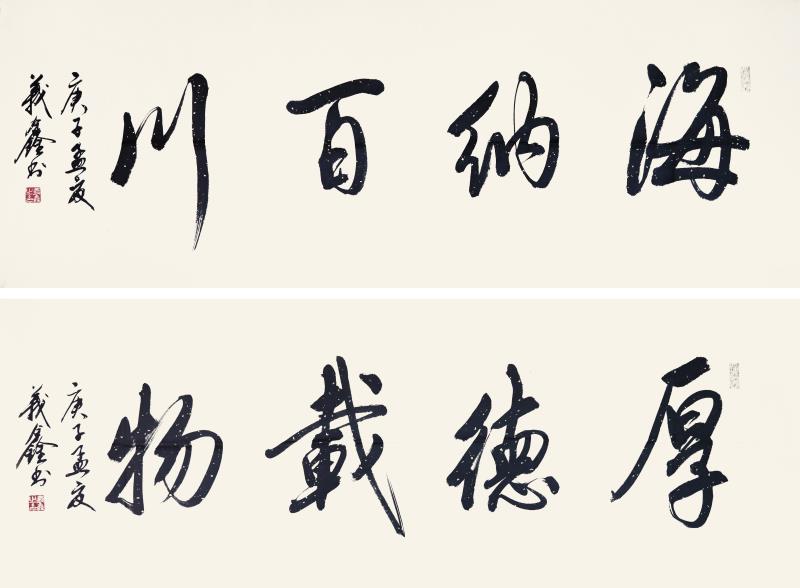 海納百川
庚子孟夏
義鑫书
厚德載物
庚子孟夏
義鑫书